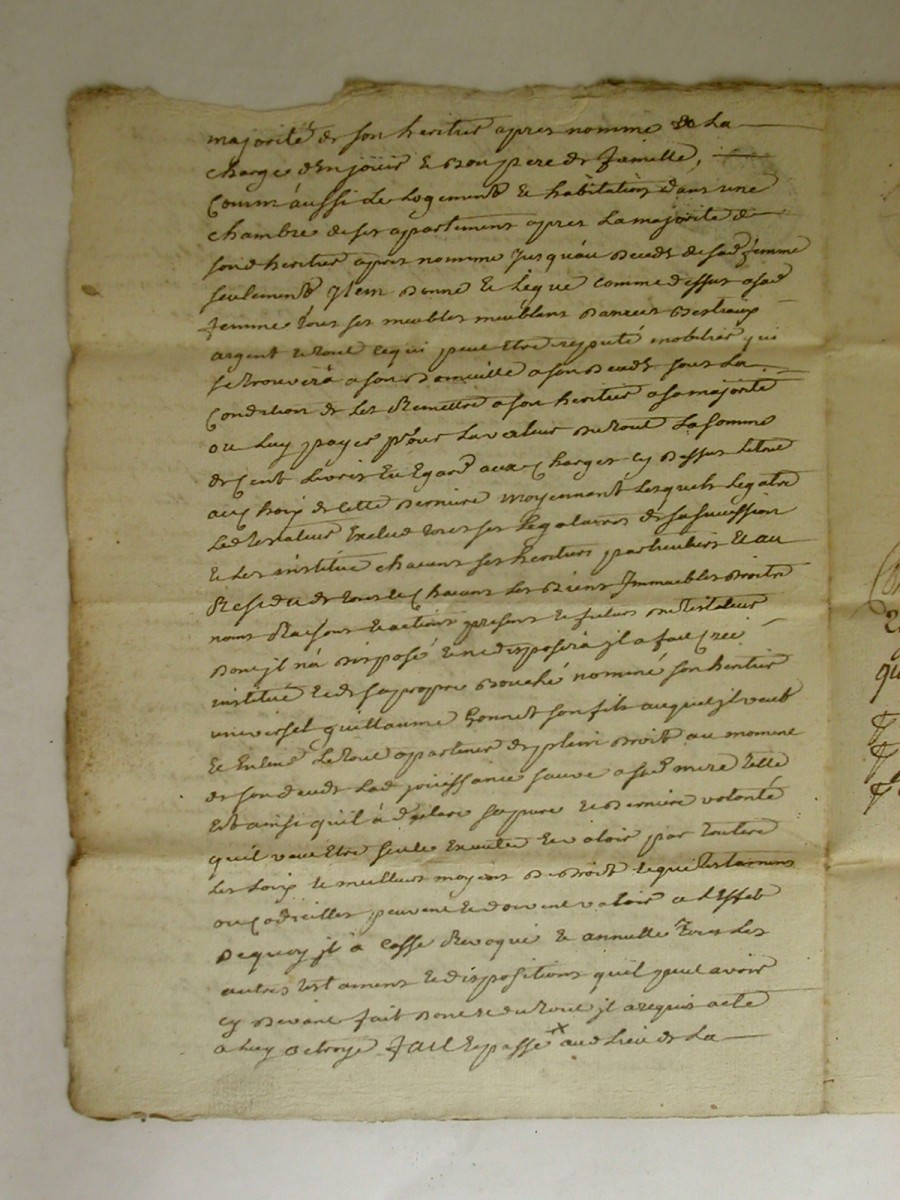 majorité de son heritier apres nommé a La
charge d'En jouir En Bon pere de famille,
Comm'aussi Le Logement Et habitation dans une
chambre de ses apartement apres La majorité de
sond heritier apres nommé Jusqu'au Deceds de sad femme
seulement Jtem Donne Et Legue comme dessus a sad
femme tous ses meubles meublens Danrées Bestiaux
argent Et tout ce qui peut Etre reputé mobilier qui
se trouvera a son Domicille a son Deceds sous La
Condition de Les Remettre a son heritier a sa majorité
ou Luy payer pour La valeur Du tout La somme
de Cent Livres Eu Egard aux Charges cy Dessus Le tout
au Choix de Cette Derniere moyennant Lesquels Legatz
Led testateur Exclud tous ses Legataires de sa succession
Et Les institue chacuns ses heritiers particuliers Et au
Residu de tous Et Chacuns Les Biens Jmmeubles Droits
noms Raisons Et actions presens Et futurs Du testateur
Dont jl n'a Disposé Et ne disposera jl a fait Créé
institué Et de sa propre Bouche nommé son heritier
universel guillaume Gonnet son fils auquel jl veut
Et Entend Le tout apartenir de plein Droit au moment
de son deceds Lad jouissance sauve a sad mere telle
Est ainsi qu'il a declaré sa pure Et Derniere volonté
qu'il veut Etre suivie Executée Et valoir par toutes
Les Loix Et meilleurs moyens De Droit Et que testamens
ou Codicilles peuvent Et doivent valoir a L'Effet
De quoy jl a Cassé Revoqué Et annullé Tous Les
autres testament Et dispositions qu'il peut avoir
cy Devant fait Dont Et du tout jl a requis acte
a Luy octroyé fait Et passé × aud Lieu de La